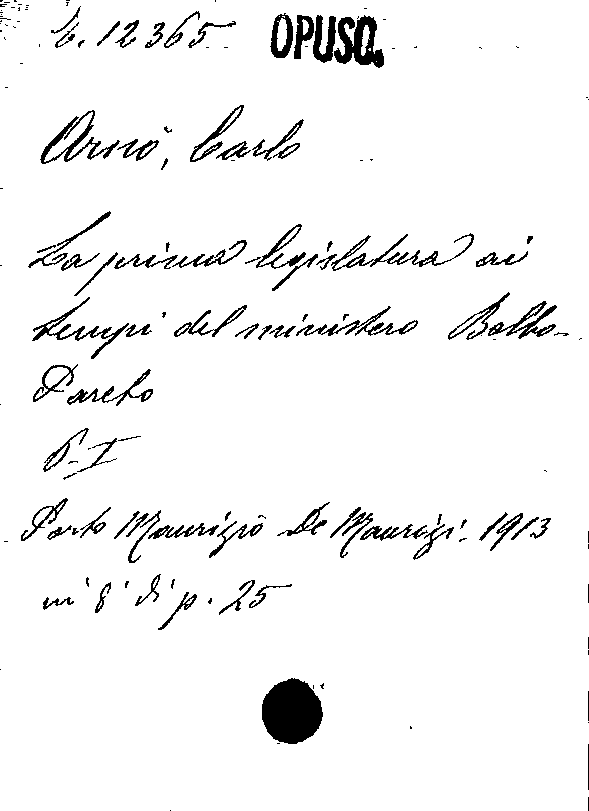 12365 OPUSC.
Arnò, Carlo
La prima legislatura ai
tempi del ministero Balbo-
Pareto
P. I
Porto Maurizio De Maurizi. 1913
in 8° di p. 25